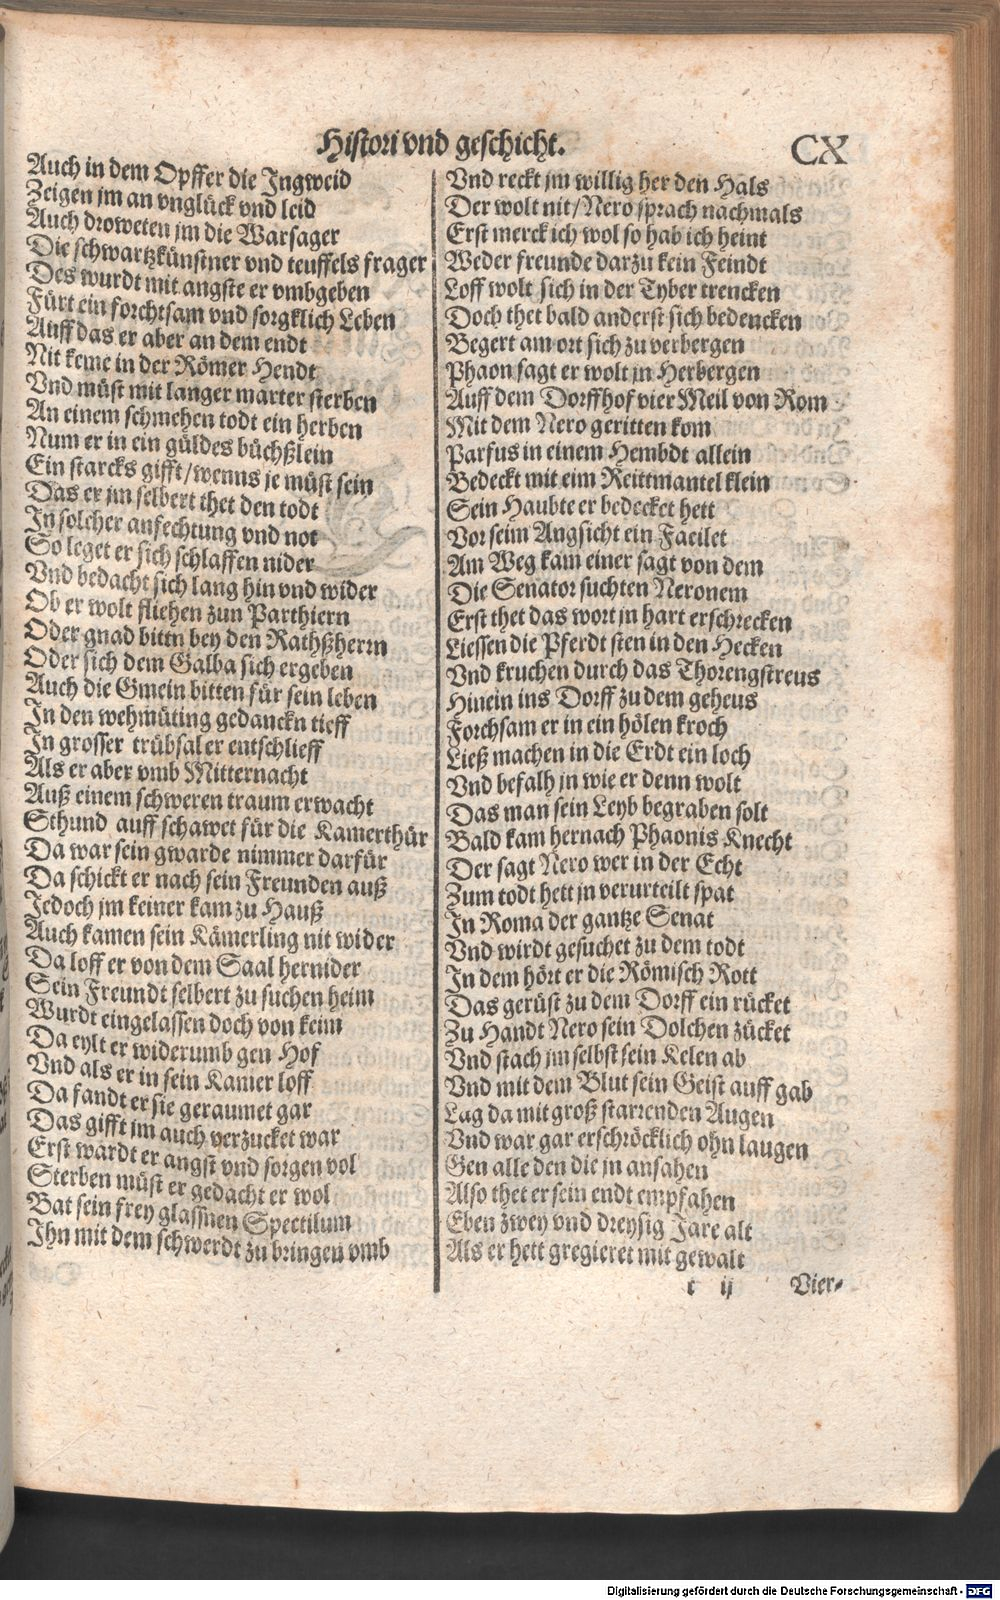 Histori vnd geschicht.
CX
Auch in dem Opffer die Jngweid
Zeigen jm an vnglück vnd leid
Auch droweten jm die Warsager
Die schwartzkünstner vnd teuffels frager
Des wurdt mit angste er vmbgeben
Fürt ein forchtsam vnd sorgklich Leben
Auff das er aber an dem endt
Nit keme in der Römer Hendt
Vnd müst mit langer marter sterben
An einem schmehen todt ein herben
Num er in ein güldes büchßlein
Ein starcks gifft/wenns je müst sein
Das er jm selbert thet den todt
In solcher anfechtung vnd not
So leget er sich schlaffen nider
Vnd bedacht sich lang hin vnd wider
Ob er wolt fliehen zun Parthiern
Oder gnad bittn bey den Rathßherrn
Oder sich dem Galba sich ergeben
Auch die Gmein bitten für sein leben
In den wehmüting gedanckn tieff
In grosser trübsal er entschlieff
Als er aber vmb Mitternacht
Auß einem schweren traum erwacht
Sthund auff schawet für die Kamerthür
Da war sein gwarde nimmer darfür
Da schickt er nach sein Freunden auß
Jedoch jm keiner kam zu Hauß
Auch kamen sein Kämerling nit wider
Da loff er von dem Saal hernider
Sein Freundt selbert zu suchen heim
Wurdt eingelassen doch von keim
Da eylt er widerumb gen Hof
Vnd als er in sein Kamer loff
Da fandt er sie geraumet gar
Das gifft jm auch verzucket war
Erst wardt er angst vnd sorgen vol
Sterben müst er gedacht er wol
Bat sein frey glassnen Spectilum
Ihn mit dem schwerdt zu bringen vmb
Vnd reckt jm willig her den Hals
Der wolt nit/Nero sprach nachmals
Erst merck ich wol so hab ich heint
Weder freunde darzu kein Feindt
Loff wolt sich in der Tyber trencken
Doch thet bald anderst sich bedencken
Begert am ort sich zu verbergen
Phaon sagt er wolt jn Herbergen
Auff dem Dorffhof vier Meil von Rom
Mit dem Nero geritten kom
Parfus in einem Hembdt allein
Bedeckt mit eim Reittmantel klein
Sein Haubte er bedecket hett
Vor seim Angsicht ein Facilet
Am Weg kam einer sagt von dem
Die Senator suchten Neronem
Erst thet das wort jn hart erschrecken
Liessen die Pferdt sten in den Hecken
Vnd kruchen durch das Thorengstreus
Hinein ins Dorff zu dem geheus
Forchsam er in ein hölen kroch
Ließ machen in die Erdt ein loch
Vnd befalh jn wie er denn wolt
Das man sein Leyb begraben solt
Bald kam hernach Phaonis Knecht
Der sagt Nero wer in der Echt
Zum todt hett jn verurteilt spat
In Roma der gantze Senat
Vnd wirdt gesuchet zu dem todt
In dem hört er die Römisch Rott
Das gerüst zu dem Dorff ein rücket
Zu Handt Nero sein Dolchen zücket
Vnd stach jm selbst sein Kelen ab
Vnd mit dem Blut sein Geist auff gab
Lag da mit groß starrenden Augen
Vnd war gar erschröcklich ohn laugen
Gen alle den die jn ansahen
Also thet er sein endt empfahen
Eben zwey vnd dreysig Jare alt
Als er hett gregieret mit gewalt
t ij
Vier-
Digitalisierung gefördert durch die Deutsche Forschungsgemeinschaft - DFG